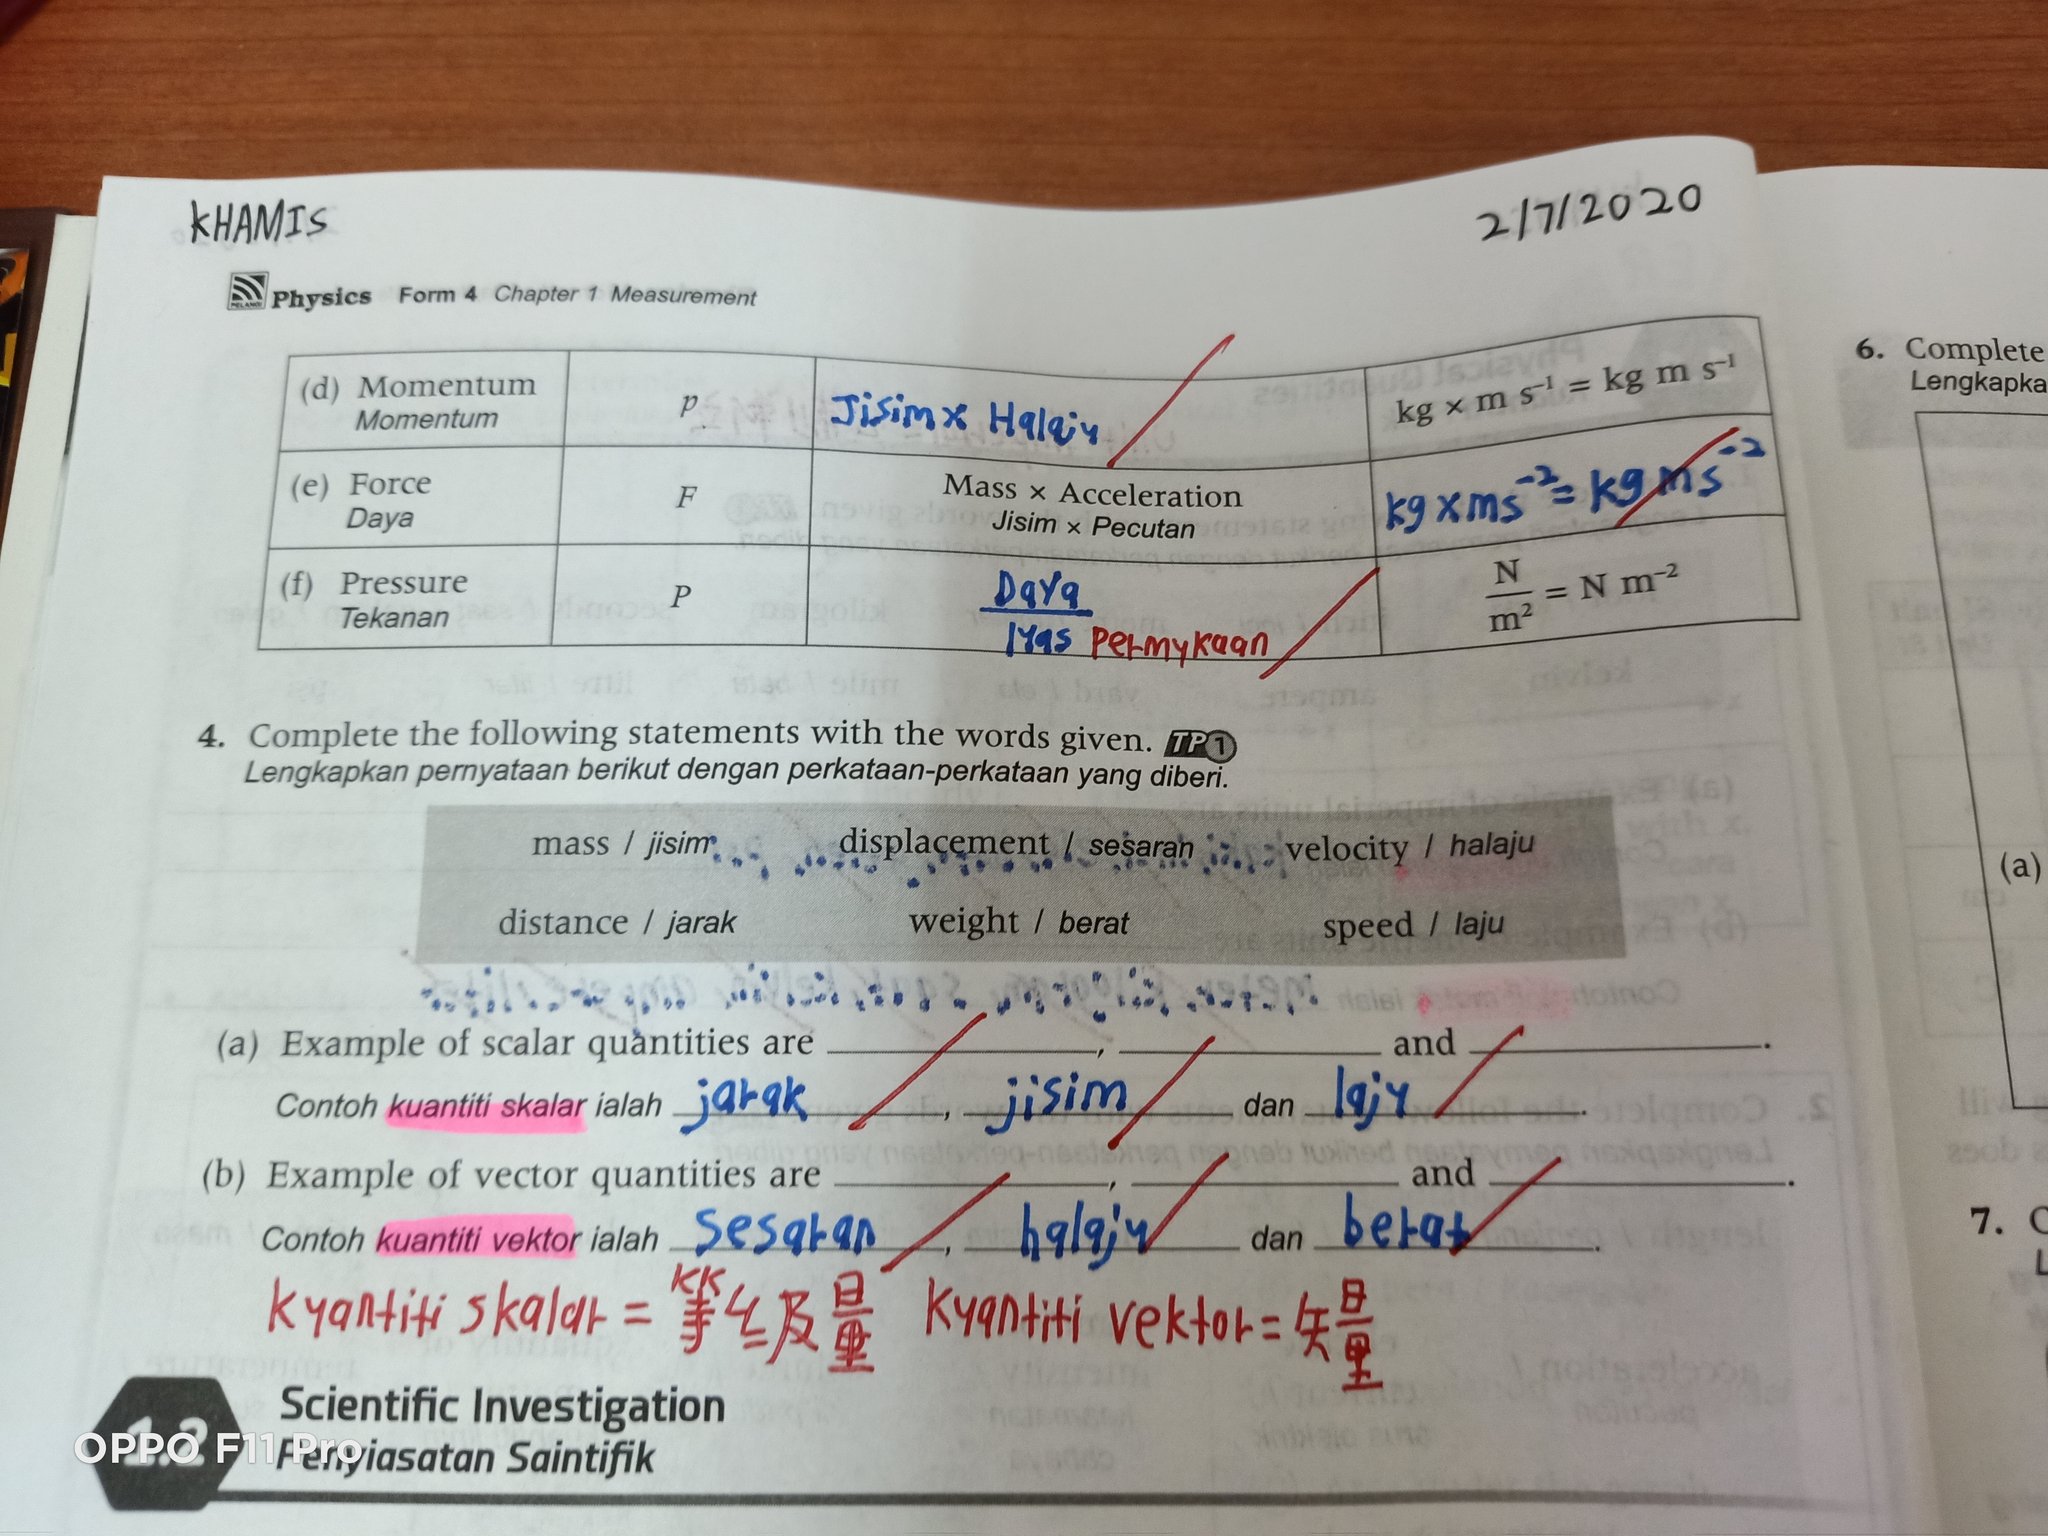 KHAMIS
2/7/2020
PELANGI Physics Form 4 Chapter 1 Measurement
(d) Momentum p Jisim x Halaju kg × m s⁻¹ = kg m s⁻¹
Momentum
(e) Force F Mass × Acceleration kg x ms⁻² = kg ms⁻²
Daya Jisim × Pecutan
(f) Pressure P Daya N/m² = N m⁻²
Tekanan luas Permukaan
4. Complete the following statements with the words given. TP 1
Lengkapkan pernyataan berikut dengan perkataan-perkataan yang diberi.
mass / jisim displacement / sesaran velocity / halaju
distance / jarak weight / berat speed / laju
(a) Example of scalar quantities are , and .
Contoh kuantiti skalar ialah jarak , jisim dan laju .
(b) Example of vector quantities are , and .
Contoh kuantiti vektor ialah sesaran , halaju dan berat .
KK
kuantiti skalar = 及量 kuantiti vektor = 矢量
1.2 Scientific Investigation
Penyiasatan Saintifik
OPPO F11 Pro
6. Complete
Lengkapka
(a)
7.